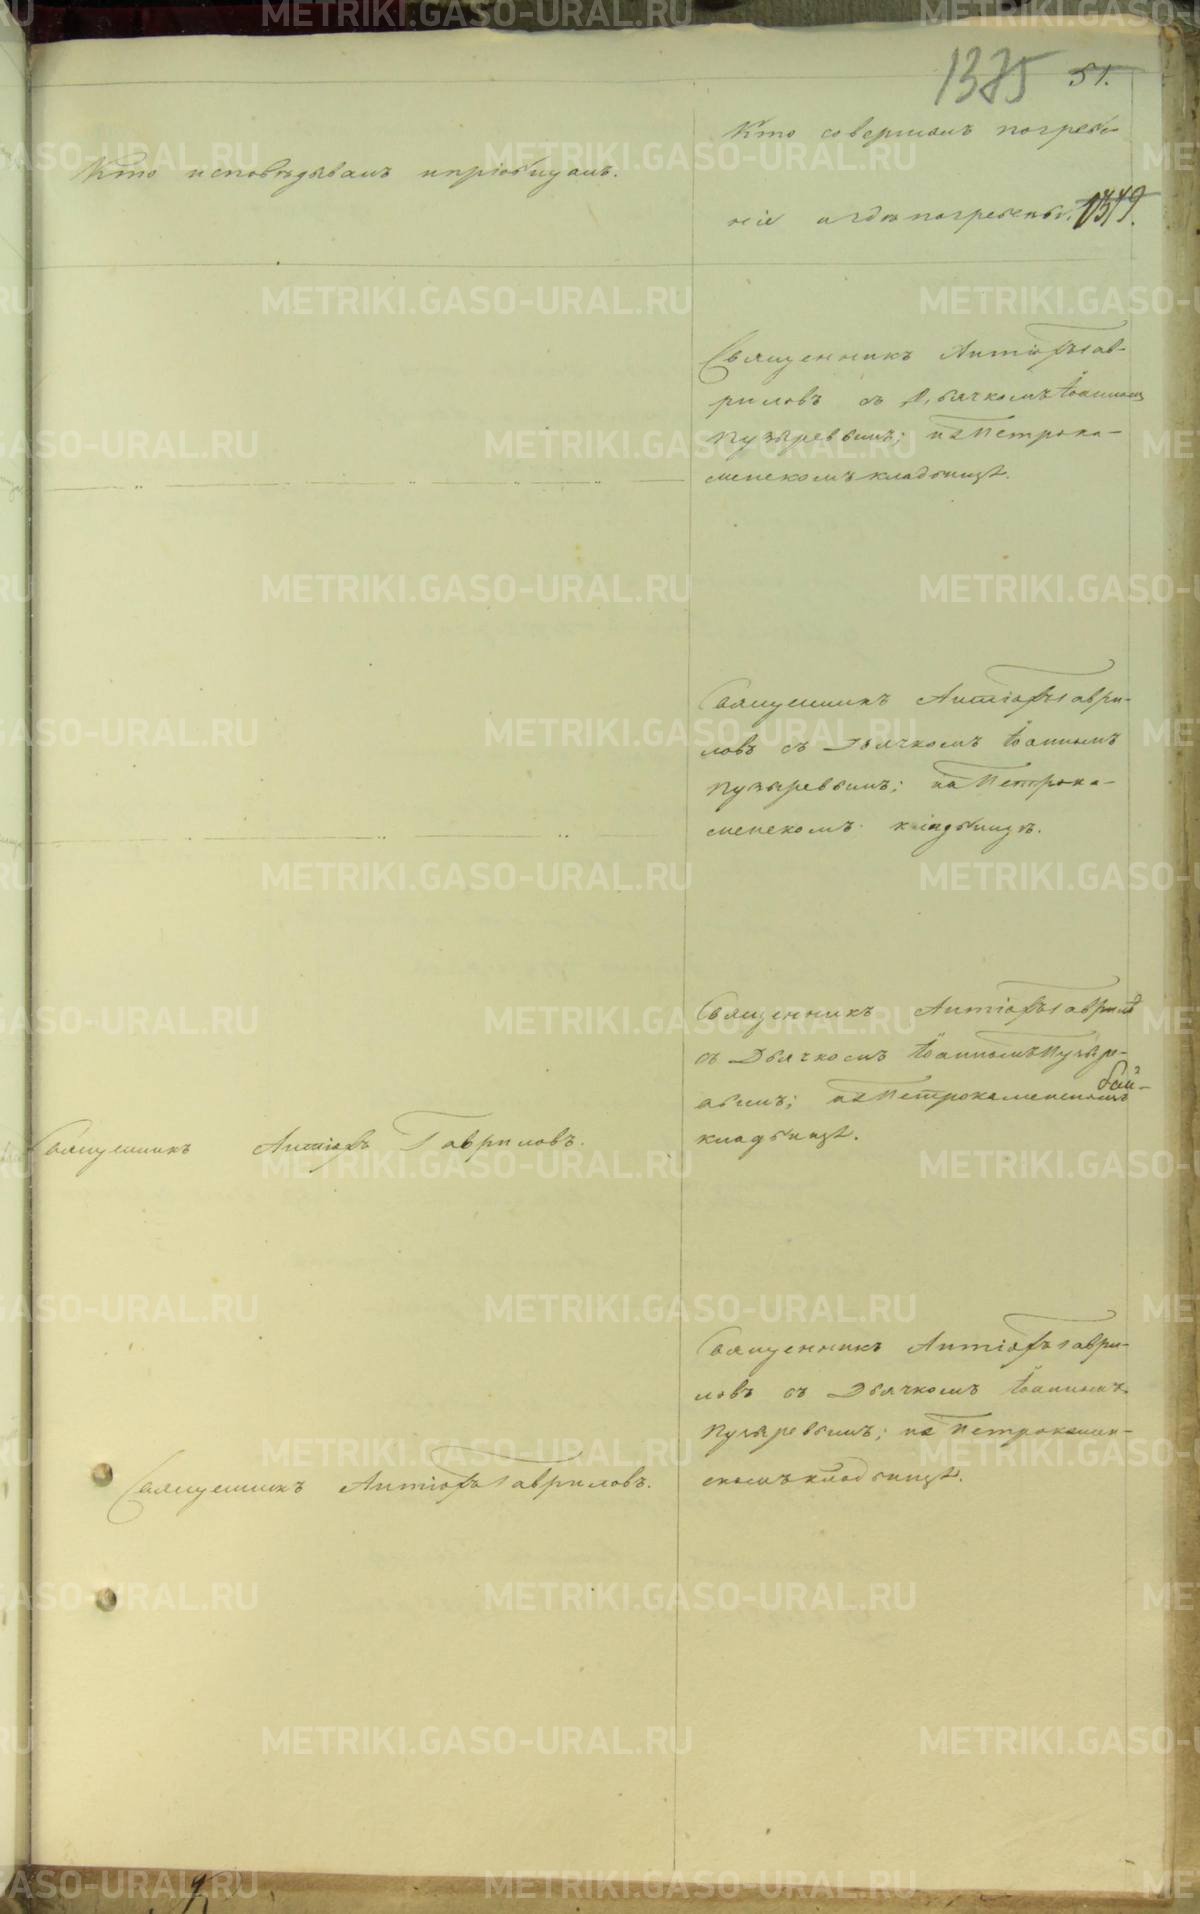 1375 51.
Кто исповѣдывалъ и пріобщалъ.
Кто совершалъ погребе-
ніе и гдѣ погребены.
1349.
Священникъ Антіохъ Гав-
риловъ съ Дьячкомъ Іоанномъ
Пузыревымъ; на Петрока-
менскомъ кладбищѣ.
Священникъ Антіохъ Гаври-
ловъ съ Дьячкомъ Іоанномъ
Пузыревымъ; на Петрока-
менскомъ кладбищѣ.
Священникъ Антіохъ Гавриловъ.
Священникъ Антіохъ Гавриловъ
съ Дьячкомъ Іоанномъ Пузыре-
вымъ; на Петрокаменскомъ
кладбищѣ.
Священникъ Антіохъ Гавриловъ.
Священникъ Антіохъ Гаври-
ловъ съ Дьячкомъ Іоанномъ
Пузыревымъ; на Петрокамен-
скомъ кладбищѣ.
METRIKI.GASO-URAL.RU